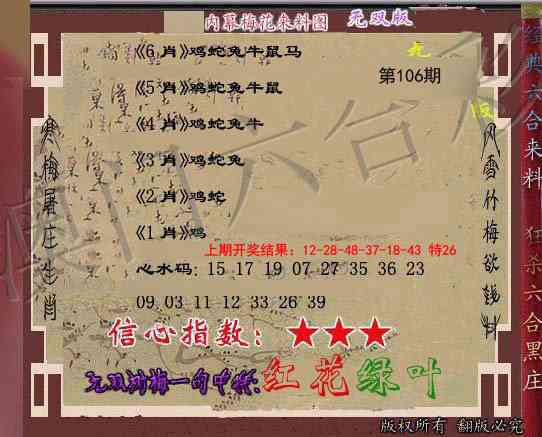 内幕梅花来料图 无双版
《6 肖》鸡蛇兔牛鼠马
第106期
《5 肖》鸡蛇兔牛鼠
《4 肖》鸡蛇兔牛
《3 肖》鸡蛇兔
《2 肖》鸡蛇
《1 肖》鸡
上期开奖结果：12-28-48-37-18-43 特26
心水码：15 17 19 07 27 35 36 23
09 03 11 12 33 26 39
信心指数：★★★
无双剑梅一句中特:红花绿叶
版权所有 翻版必究
寒梅屠庄生肖
风雪竹梅欲钱料
经典六合来料
狂杀六合黑庄
澳门六合彩